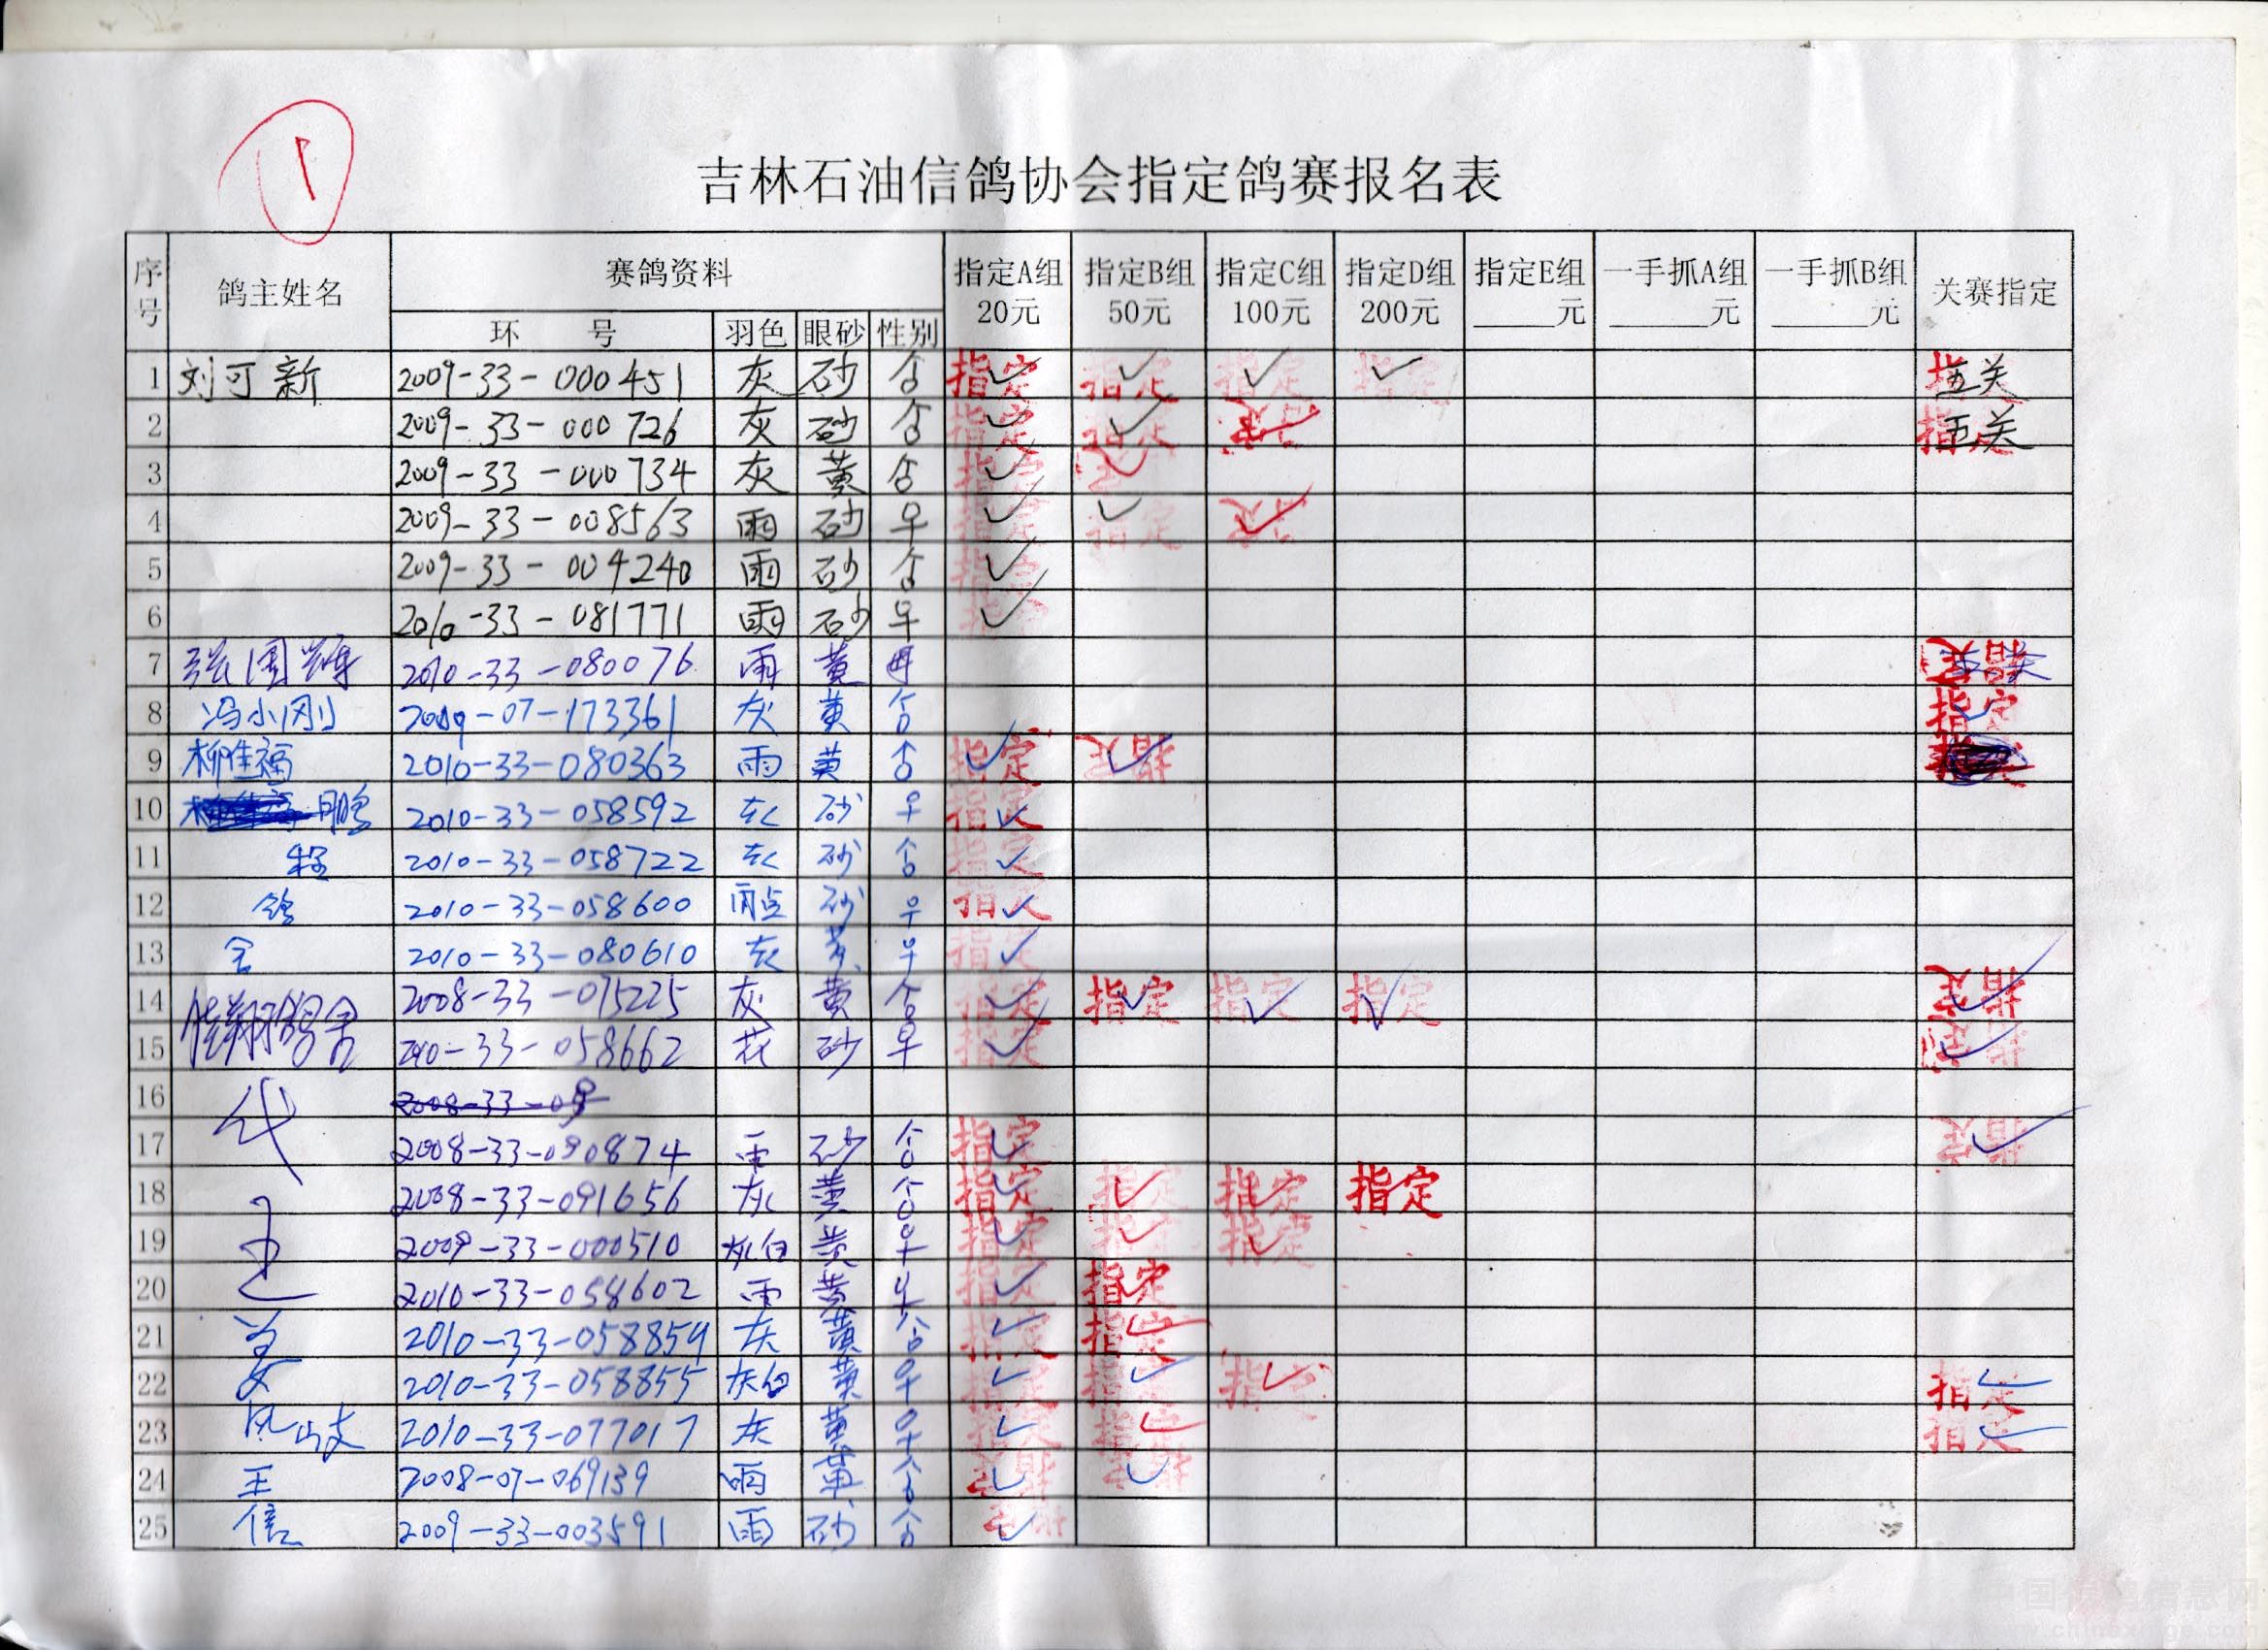 1
吉林石油信鸽协会指定鸽赛报名表
序号 鸽主姓名 赛鸽资料 指定A组 20元 指定B组 50元 指定C组 100元 指定D组 200元 指定E组 ____元 一手抓A组 ____元 一手抓B组 ____元 关赛指定
环 号 羽色 眼砂 性别
1 刘可新 2009-33-000451 灰 砂 ✓ 指定 ✓ 指定 ✓ 指定 ✓ 指定 ✓ 指定 五关
2 2009-33-000726 灰 砂 指定 ✓ 指定 ✓ 指定 ✓ 指定 五关
3 2009-33-000734 灰 黄 指定 ✓ 指定 ✓
4 2009-33-008563 雨 砂 指定 ✓ 指定 ✓ 指定 ✓
5 2009-33-004240 雨 砂 指定 ✓
6 2010-33-081771 雨 砂 指定 ✓
7 张国辉 2010-33-080076 雨 黄 指定
8 冯小刚 2009-07-173361 灰 黄 指定 ✓
9 柳佳福 2010-33-080363 雨 黄 指定 ✓ 指定 ✓
10 2010-33-058592 灰 砂 指定 ✓
11 2010-33-058722 灰 砂 指定 ✓
12 鸽 2010-33-058600 雨点 砂 指定 ✓
13 舍 2010-33-080610 灰 黄 指定 ✓
14 佳翔鸽舍 2008-33-075225 灰 黄 指定 ✓ 指定 ✓ 指定 ✓ 指定 ✓ 指定 ✓
15 2010-33-058662 花 砂 指定 ✓ 指定 ✓
16
17 2008-33-090874 雨 砂 指定 ✓ 指定 ✓
18 2008-33-091656 灰 黄 指定 ✓ 指定 ✓ 指定 ✓ 指定
19 2009-33-000510 灰白 黄 指定 ✓ 指定 ✓ 指定 ✓
20 2010-33-058602 雨 黄 指定 ✓ 指定 ✓
21 2010-33-058859 灰 黄 指定 ✓ 指定 ✓
22 2010-33-058855 灰白 黄 指定 ✓ 指定 ✓ 指定 ✓ 指定 ✓
23 2010-33-077017 灰 黄 指定 ✓ 指定 ✓ 指定 ✓
24 王 2008-07-069139 雨 黄 指定 ✓ 指定 ✓
25 信 2009-33-003591 雨 砂 指定 ✓
中国信鸽信息网
www.chinaxinge.com